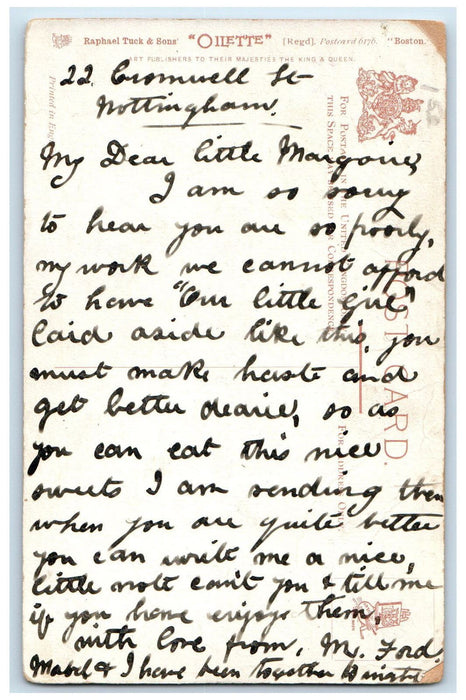 Raphael Tuck & Sons' "OILETTE" [Regd.] Postcard 6176. "Boston."
ART PUBLISHERS TO THEIR MAJESTIES THE KING & QUEEN.
22 Cromwell St
Nottingham.
My Dear little Margorie,
I am so sorry
to hear you are so poorly,
my work we cannot afford
to have "Our little Girl"
laid aside like this, you
must make haste and
get better dearie, so as
you can eat this nice
sweets I am sending them
when you are quite better
you can write me a nice,
little note can't you & tell me
if you have enjoye them,
with love from, M. Ford.
Mabel & I have been together
Printed in
POST CARD.
FOR
THIS SPACE MAY BE USED FOR CORRESPONDENCE
152